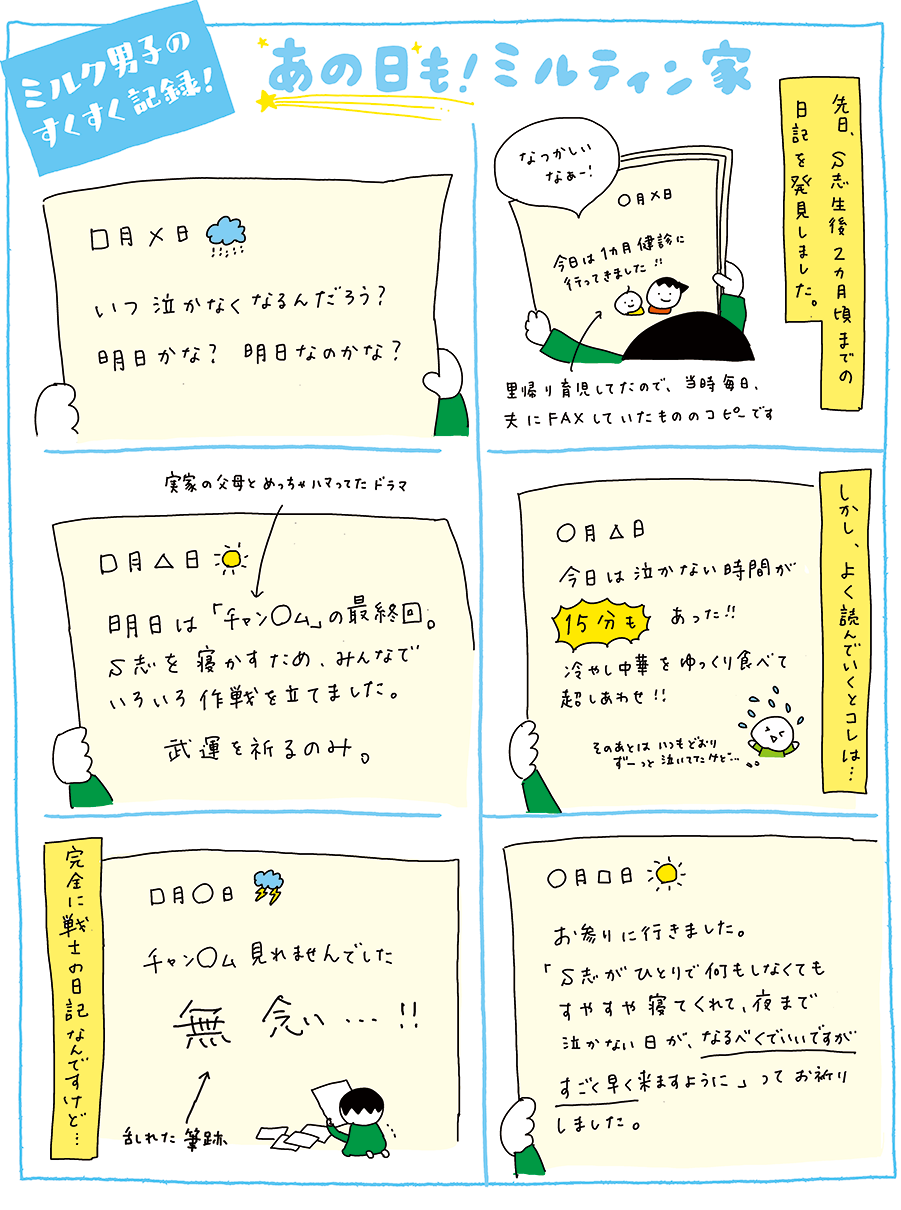 ミルク男子の
すくすく記録!
あの日も!ミルティン家
先日、S志生後2ヵ月頃までの
日記を発見しました。
なつかしい
なぁー!
〇月×日
今日は1ヵ月健診に
行ってきました!!
里帰り育児してたので、当時毎日、
夫にFAXしていたもののコピーです
しかし、よく読んでいくとコレは…
〇月△日
今日は泣かない時間が
15分も あった!!
冷やし中華をゆっくり食べて
超しあわせ!!
そのあとは いつもどおり
ずーっと泣いてたけど…
〇月□日
お参りに行きました。
「S志がひとりで何もしなくても
すやすや寝てくれて、夜まで
泣かない日が、なるべくでいいですが
すごく早く来ますように」ってお祈り
しました。
□月×日
いつ泣かなくなるんだろう?
明日かな? 明日なのかな?
実家の父母とめっちゃハマってたドラマ
□月△日
明日は「チャン〇ム」の最終回。
S志を寝かすため、みんなで
いろいろ作戦を立てました。
武運を祈るのみ。
完全に戦士の日記なんですけど…
□月〇日
チャン〇ム見れませんでした
無念…!!
乱れた筆跡